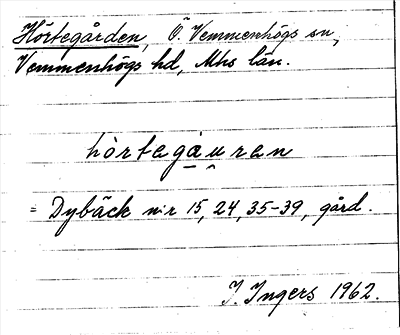 Hörtegården, Ö. Vemmenhögs sn,
Vemmenhögs hd, Mhs län.
hòrtegau̯ren
= Dybäck nr 15, 24, 35-39, gård.
I. Ingers 1962.